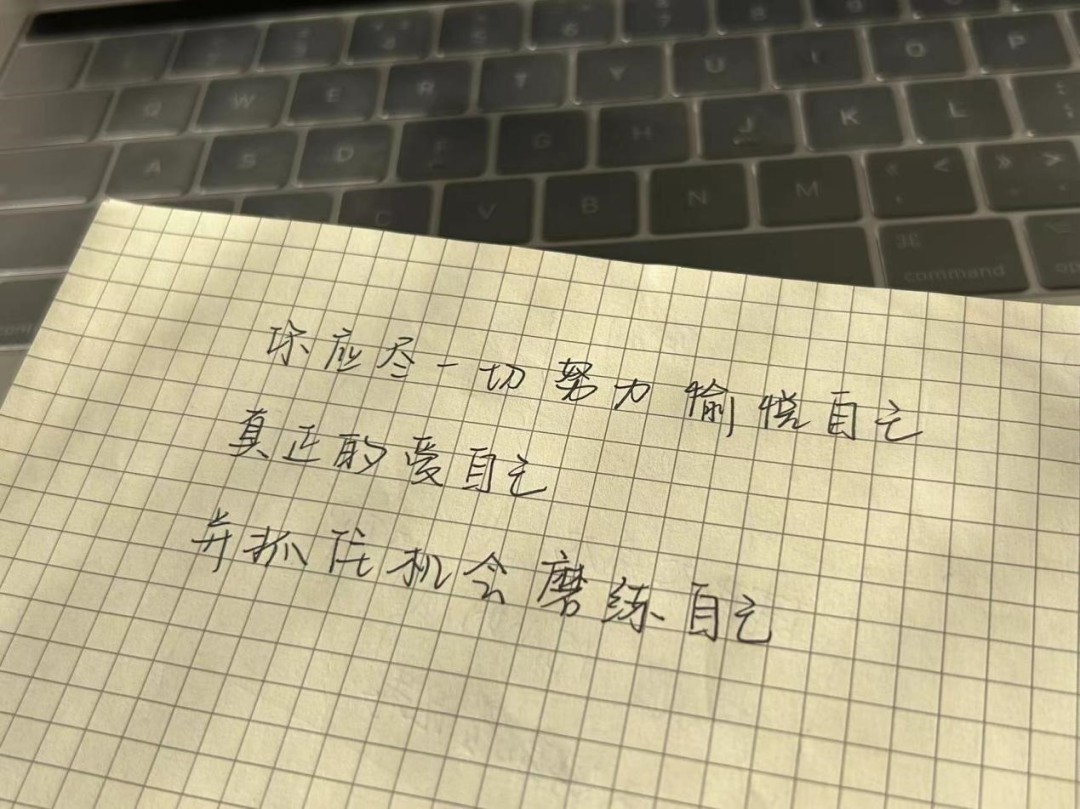 7
8
9
Q W E R T Y U I O P
A S D F G H J K L
C V B N M < >
⌘ ⌥
command
你应尽一切努力愉悦自己
真正的爱自己
并抓住机会磨练自己